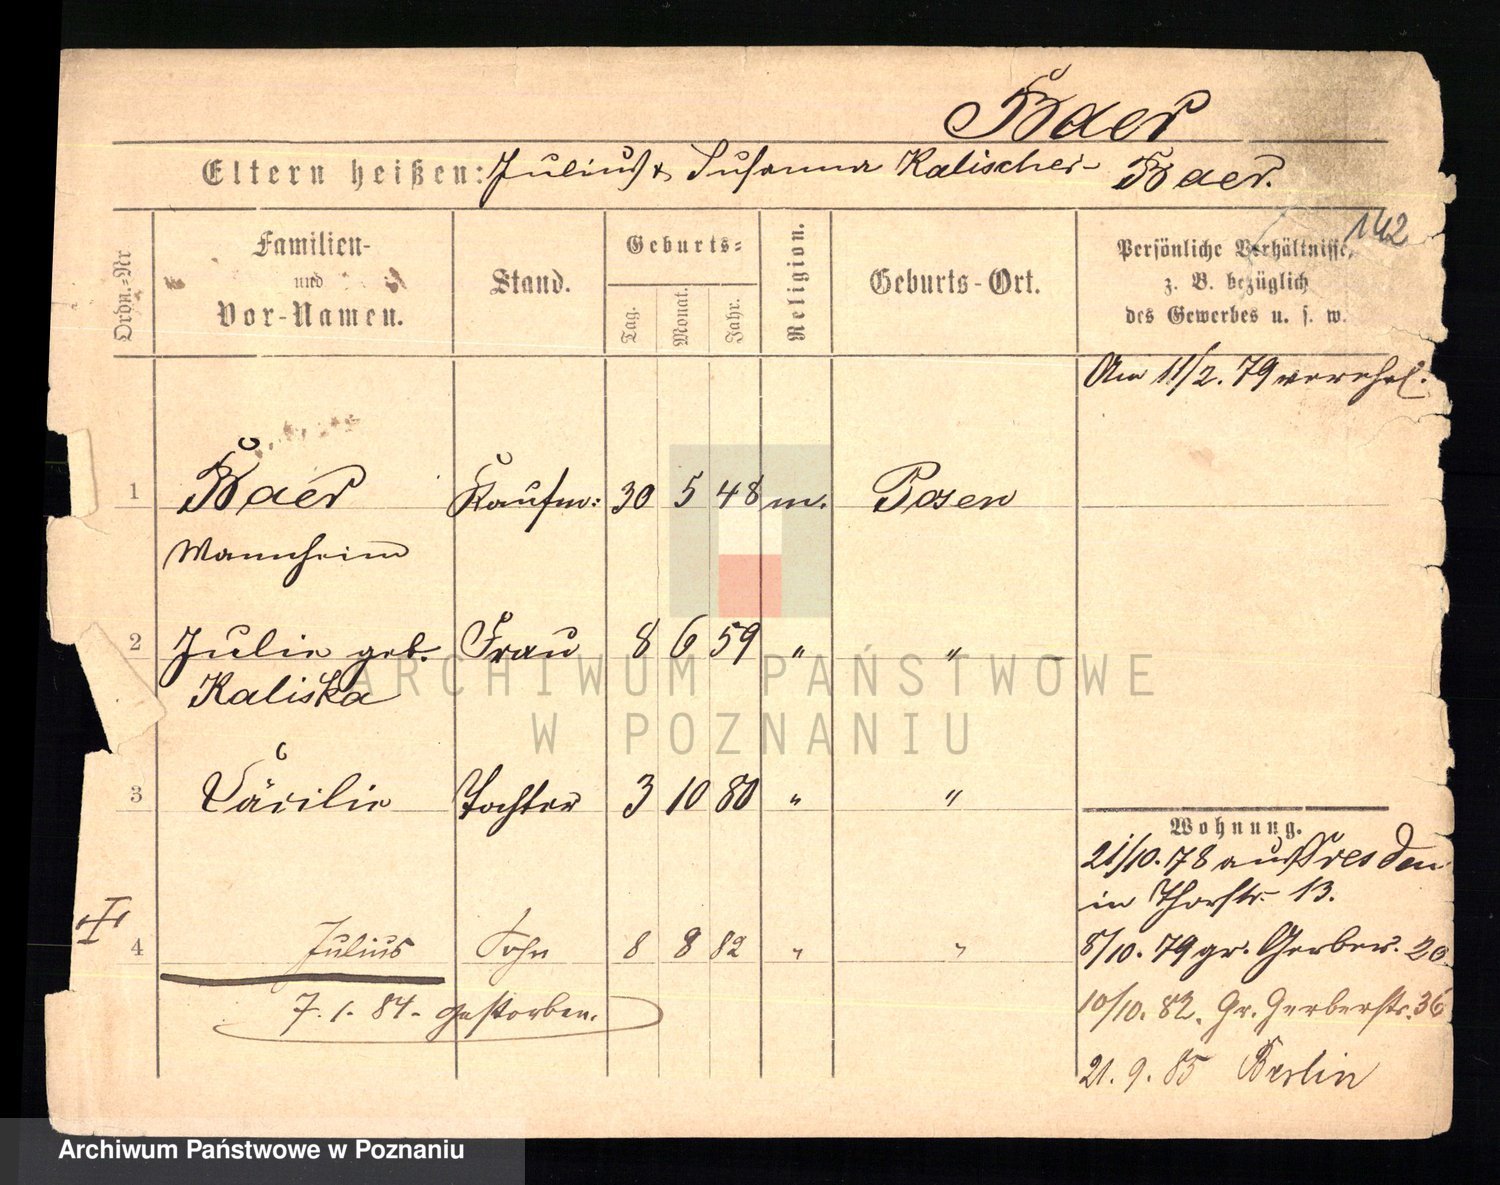 Baer
Eltern heißen: Julius & Susanna Kalischer- Baer.
142
Ordn.-Nr
Familien-
und
Vor-Namen.
Stand.
Geburts-
Tag.
Monat.
Jahr.
Religion.
Geburts-Ort.
Persönliche Verhältnisse,
z. B. bezüglich
des Gewerbes u. s. w.
Am 11/2. 79 verehel.
1 Baer Kaufm: 30 5 48 m. Posen
Mannheim
2 Julie geb. Frau 8 6 59 " "
Kaliska
3 Cäcilie Tochter 3 10 80 " "
Wohnung.
21/10. 78 aus Dresden
in Thorstr. 13.
4 Julius Sohn 8 8 82 " "
8/10. 79 gr. Gerber. 20
7. 1. 84. gestorben.
10/10. 82. Gr. Gerberstr. 36
21. 9. 85 Berlin
ARCHIWUM PAŃSTWOWE
W POZNANIU
Archiwum Państwowe w Poznaniu